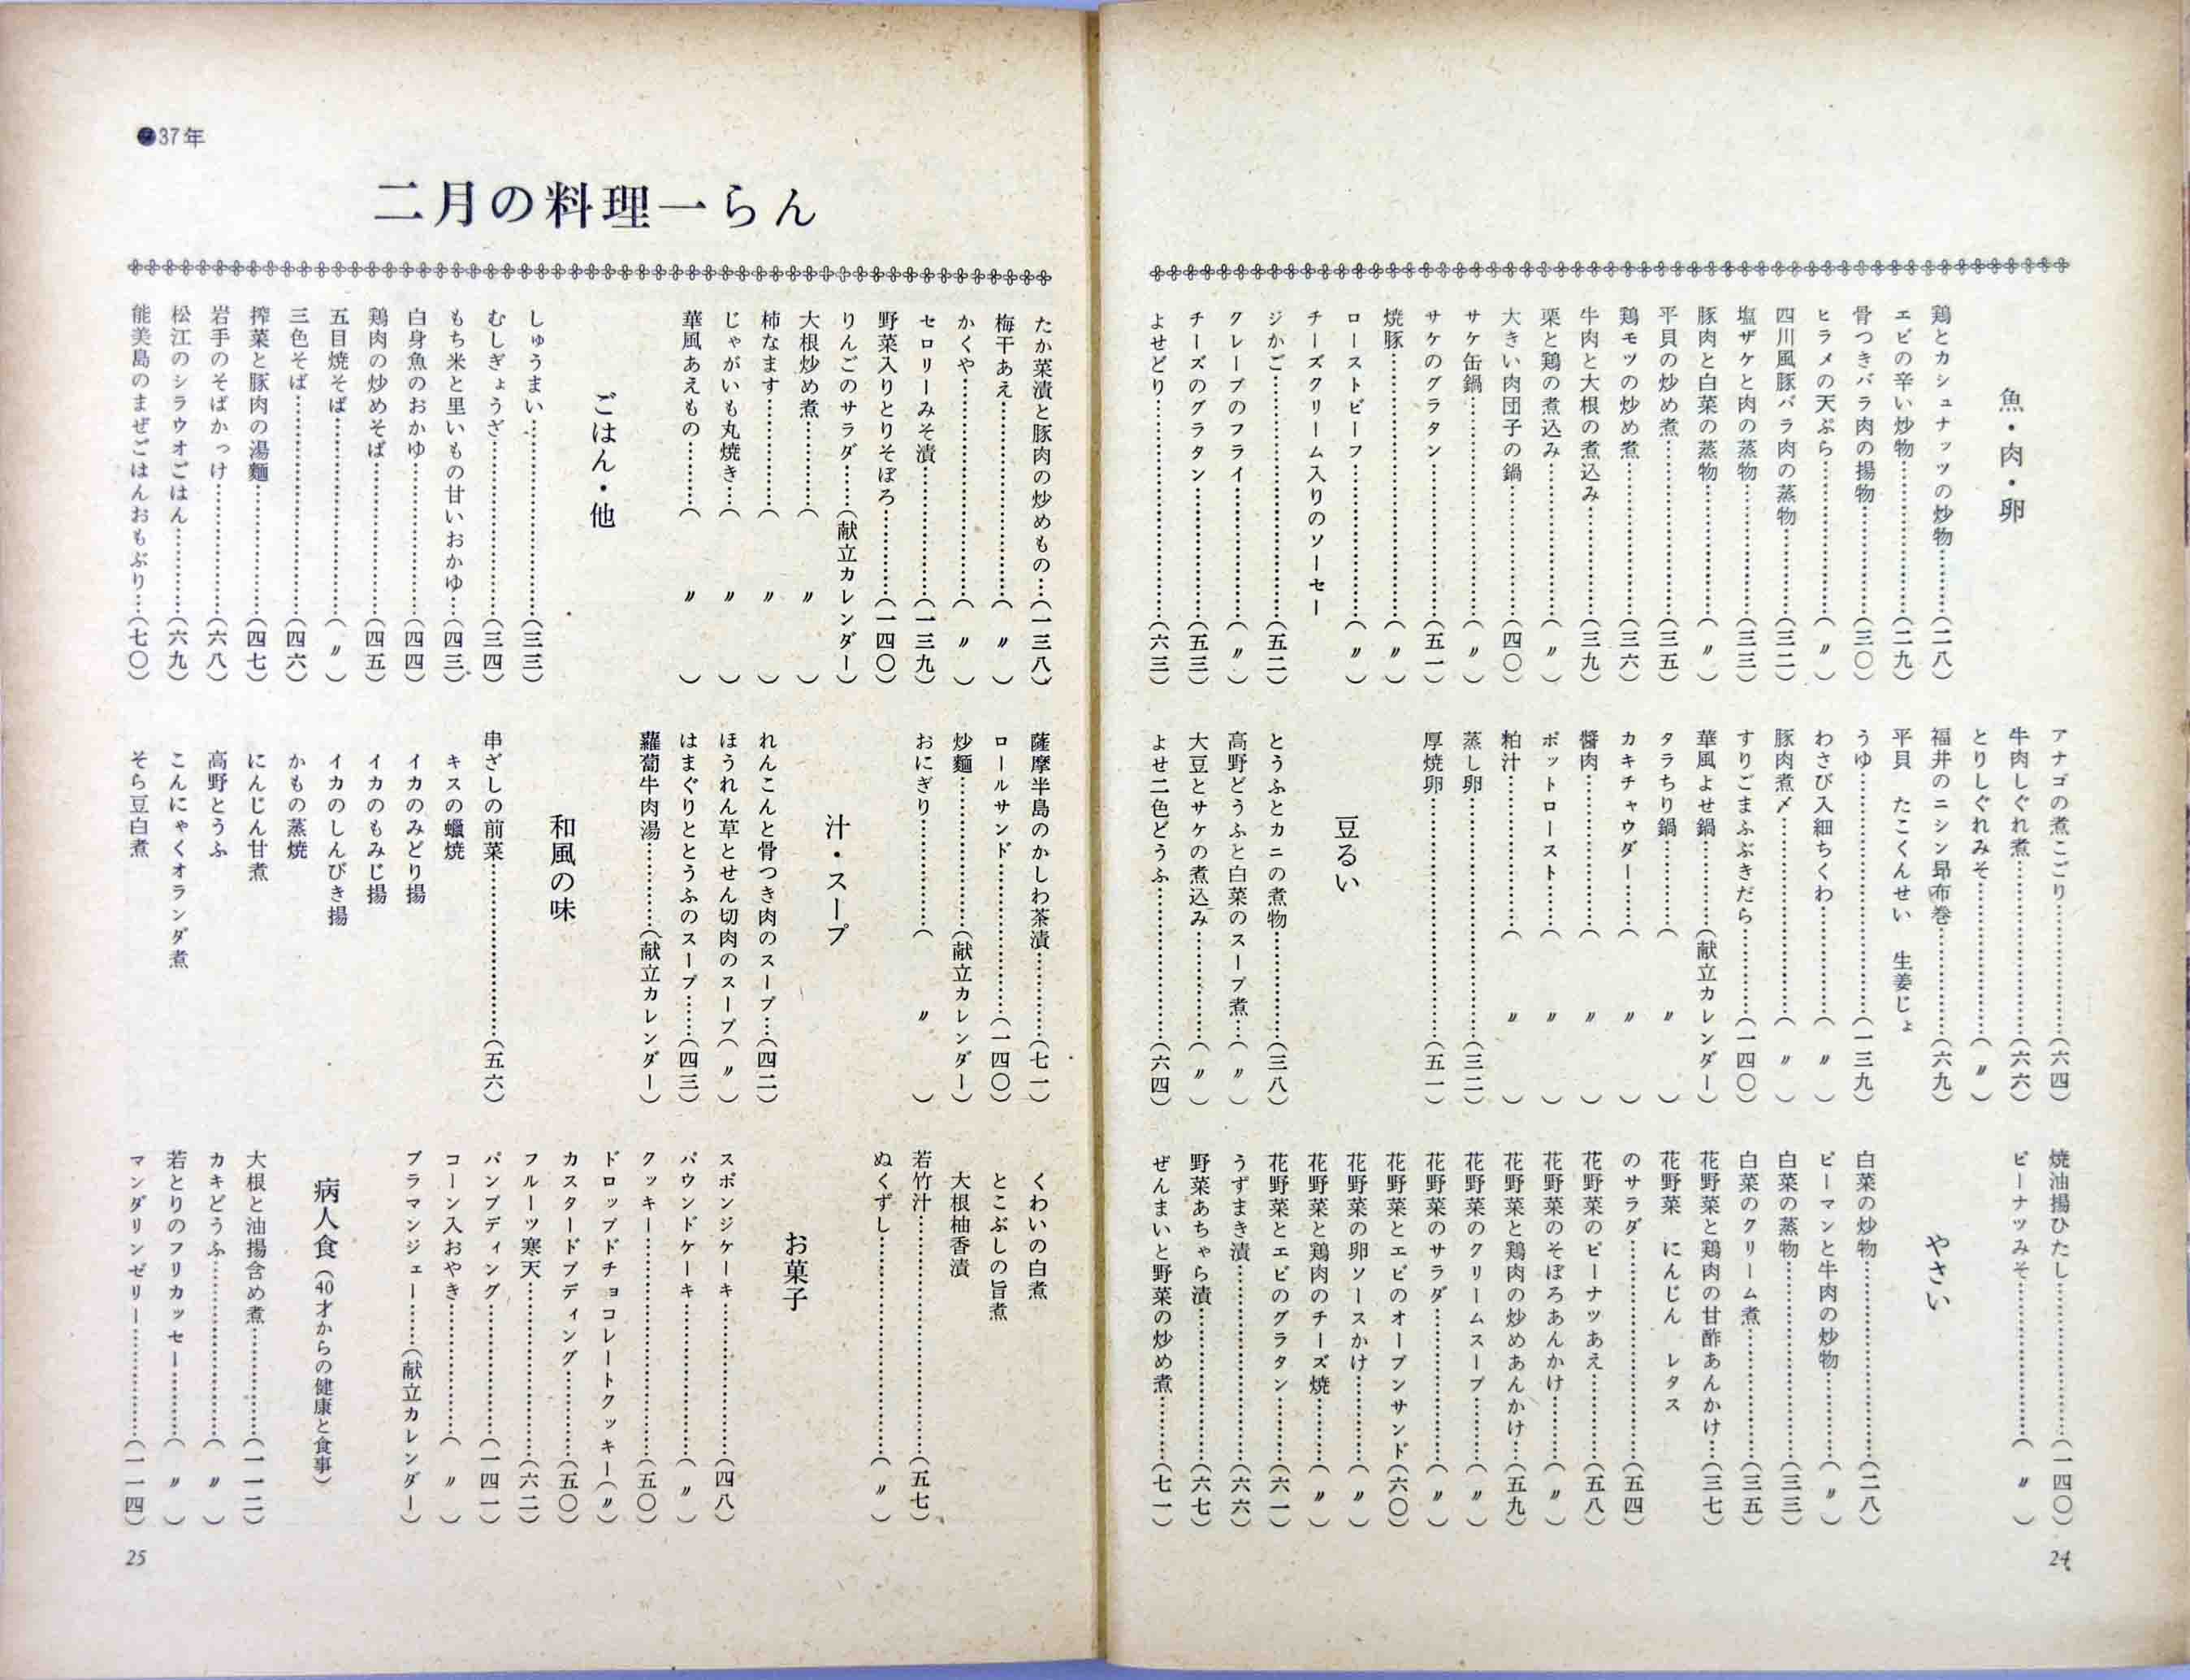 魚・肉・卵
鶏とカシュナッツの炒物………(二八)
エビの辛い炒物………………(二九)
骨つきバラ肉の揚物…………(三〇)
ヒラメの天ぷら………………(〃)
四川風豚バラ肉の蒸物………(三二)
塩ザケと肉の蒸物……………(三三)
豚肉と白菜の蒸物……………(〃)
平貝の炒め煮…………………(三五)
鶏モツの炒め煮………………(三六)
牛肉と大根の煮込み…………(三九)
栗と鶏の煮込み………………(〃)
大きい肉団子の鍋……………(四〇)
サケ缶鍋………………………(〃)
サケのグラタン………………(五一)
焼豚……………………………(〃)
ローストビーフ………………(〃)
チーズクリーム入りのソーセー
ジかご…………………………(五二)
クレープのフライ……………(〃)
チーズのグラタン……………(五三)
よせどり………………………(六三)
アナゴの煮こごり……………(六四)
牛肉しぐれ煮…………………(六六)
とりしぐれみそ………………(〃)
福井のニシン昆布巻…………(六九)
平貝 たこくんせい 生姜じょ
うゆ……………………………(一三九)
わさび入細ちくわ……………(〃)
豚肉煮〆………………………(〃)
すりごまふぶきだら…………(一四〇)
華風よせ鍋…………(献立カレンダー)
タラちり鍋…………(〃)
カキチャウダー……(〃)
醬肉…………………(〃)
ポットロースト……(〃)
粕汁…………………(〃)
蒸し卵…………………………(三二)
厚焼卵…………………………(五一)
豆るい
とうふとカニの煮物…………(三八)
高野どうふと白菜のスープ煮…(〃)
大豆とサケの煮込み…………(〃)
よせ二色どうふ………………(六四)
焼油揚ひたし…………………(一四〇)
ピーナツみそ…………………(〃)
やさい
白菜の炒物……………………(二八)
ピーマンと牛肉の炒物………(〃)
白菜の蒸物……………………(三三)
白菜のクリーム煮……………(三五)
花野菜と鶏肉の甘酢あんかけ…(三七)
花野菜 にんじん レタス
のサラダ………………………(五四)
花野菜のピーナツあえ………(五八)
花野菜のそぼろあんかけ……(〃)
花野菜と鶏肉の炒めあんかけ…(五九)
花野菜のクリームスープ……(〃)
花野菜のサラダ………………(〃)
花野菜とエビのオープンサンド(六〇)
花野菜の卵ソースかけ………(〃)
花野菜と鶏肉のチーズ焼……(〃)
花野菜とエビのグラタン……(六一)
うずまき漬……………………(六六)
野菜あちゃら漬………………(六七)
ぜんまいと野菜の炒め煮……(七一)
24
●37年
二月の料理一らん
たか菜漬と豚肉の炒めもの…(一三八)
梅干あえ………………………(〃)
かくや…………………………(〃)
セロリーみそ漬………………(一三九)
野菜入りとりそぼろ…………(一四〇)
りんごのサラダ……(献立カレンダー)
大根炒め煮…………(〃)
柿なます……………(〃)
じゃがいも丸焼き…(〃)
華風あえもの………(〃)
ごはん・他
しゅうまい……………………(三三)
むしぎょうざ…………………(三四)
もち米と里いもの甘いおかゆ…(四三)
白身魚のおかゆ………………(四四)
鶏肉の炒めそば………………(四五)
五目焼そば……………………(〃)
三色そば………………………(四六)
搾菜と豚肉の湯麵……………(四七)
岩手のそばかっけ……………(六八)
松江のシラウオごはん………(六九)
能美島のまぜごはんおもぶり…(七〇)
薩摩半島のかしわ茶漬………(七一)
ロールサンド…………………(一四〇)
炒麵…………………(献立カレンダー)
おにぎり……………(〃)
汁・スープ
れんこんと骨つき肉のスープ…(四二)
ほうれん草とせん切肉のスープ(〃)
はまぐりととうふのスープ……(四三)
蘿蔔牛肉湯…………(献立カレンダー)
和風の味
串ざしの前菜…………………(五六)
キスの蠟焼
イカのみどり揚
イカのもみじ揚
イカのしんびき揚
かもの蒸焼
にんじん甘煮
高野とうふ
こんにゃくオランダ煮
そら豆白煮
くわいの白煮
とこぶしの旨煮
大根柚香漬
若竹汁…………………………(五七)
ぬくずし………………………(〃)
お菓子
スポンジケーキ………………(四八)
パウンドケーキ………………(〃)
クッキー………………………(五〇)
ドロップドチョコレートクッキー(〃)
カスタードプディング………(五〇)
フルーツ寒天…………………(六二)
パンプディング………………(一四一)
コーン入おやき………………(〃)
ブラマンジェー……(献立カレンダー)
病人食(40才からの健康と食事)
大根と油揚含め煮……………(一一二)
カキどうふ……………………(〃)
若とりのフリカッセー………(〃)
マンダリンゼリー……………(一一四)
25